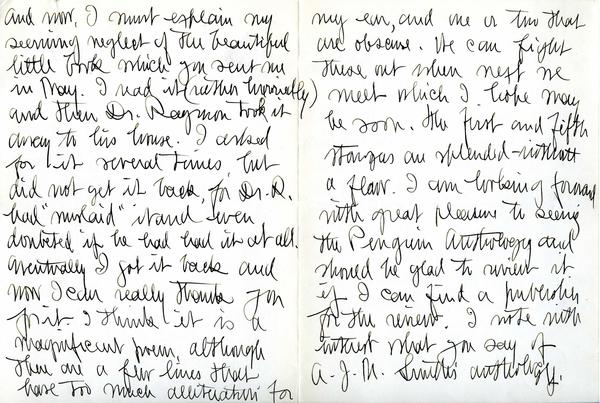 and now, I must explain my
seeming neglect of the beautiful
little book which you sent me
in May. I read it (rather hurriedly)
and then Dr. Raymon took it
away to his house. I asked
for it several times, but
did not get it back, for Dr. R.
had "mislaid" it and even
doubted if he had had it at all.
Eventually I got it back and
now I can really thank you
for it. I think it is a
magnificent poem, although
there are a few lines that
have too much alliteration for
my ear, and one or two that
are obscure. We can fight
these out when next we
meet which I hope may
be soon. The first and fifth
stanzas are splendid - without
a flaw. I am looking forward
with great pleasure to seeing
the Penguin Anthology and
should be glad to review it
if I can find a publisher
for the review. I note with
interest what you say of
A. J. M. Smith's anthology.